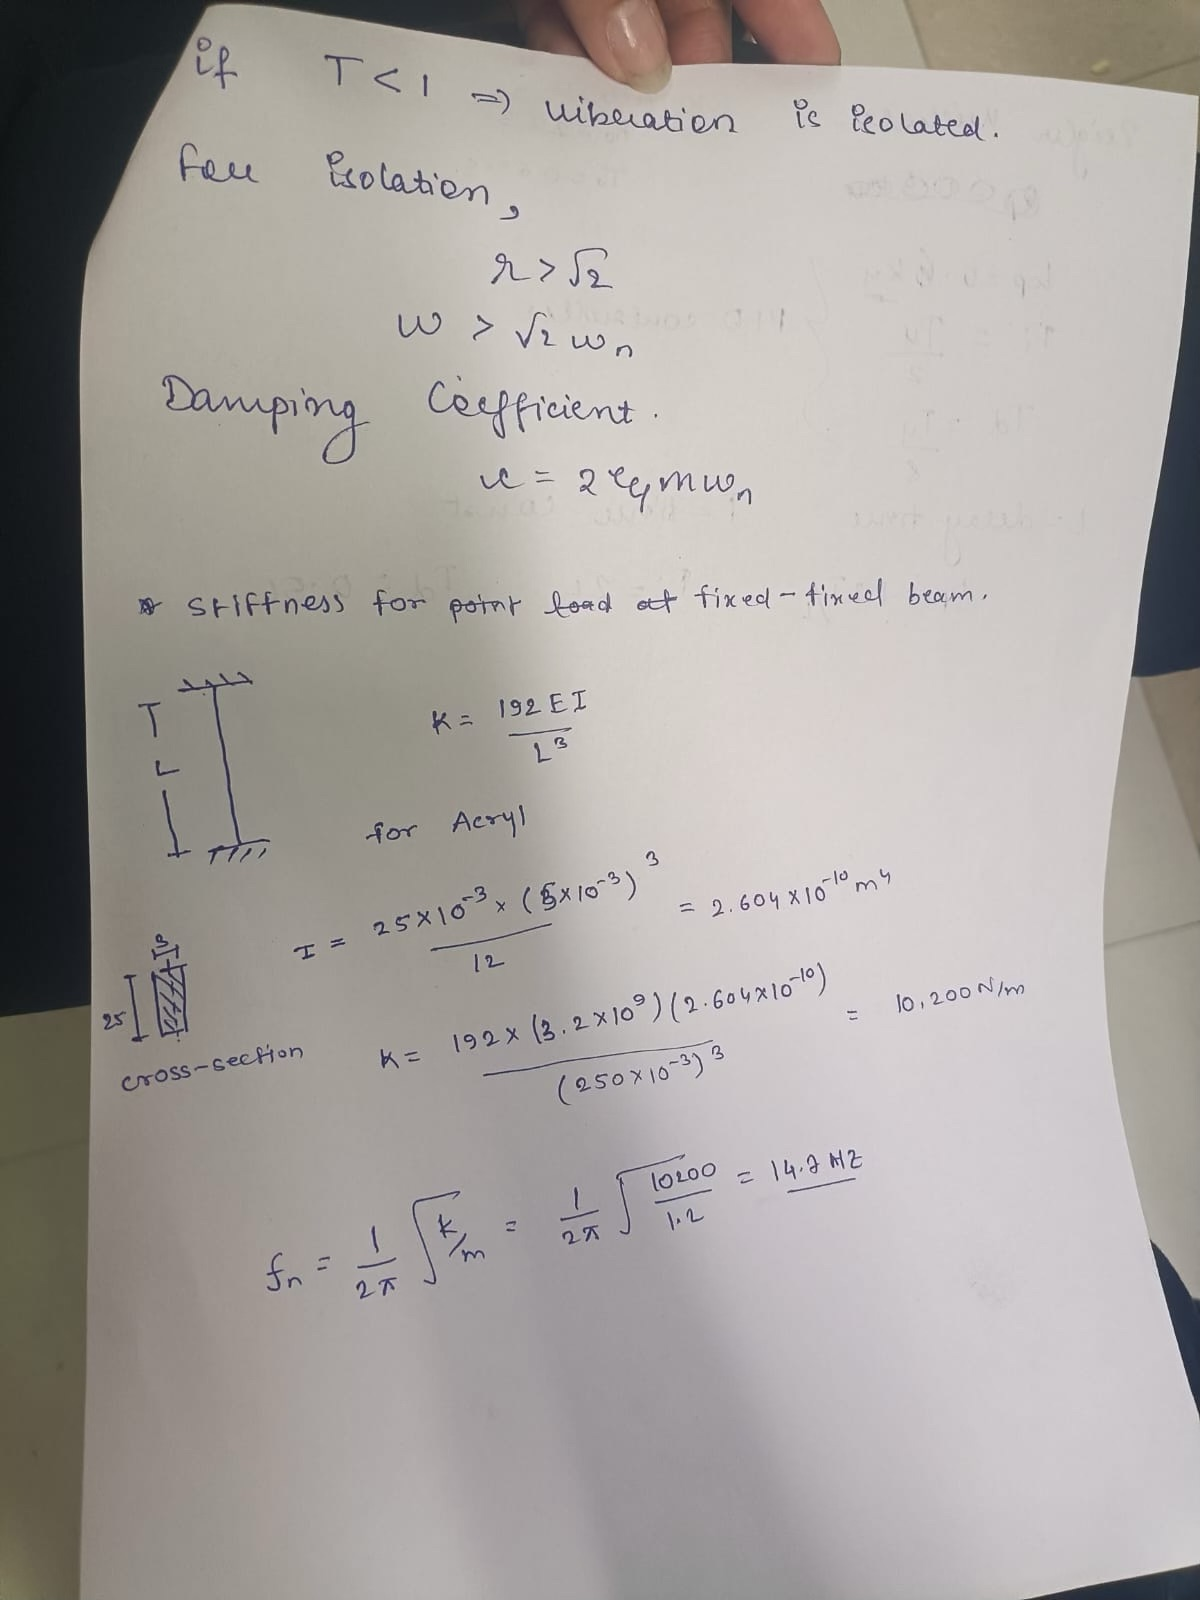 if T < 1 ⇒ vibration is isolated.
For isolation,
r > √2
ω > √2 ωn
Damping Coefficient.
c = 2 ξ m ωn
* stiffness for point load at fixed-fixed beam.
L
K = 192 EI / L³
for Acryl
I = 25×10⁻³ × (5×10⁻³)³ / 12 = 2.604 × 10⁻¹⁰ m⁴
25
cross-section
K = 192 × (3.2×10⁹)(2.604×10⁻¹⁰) / (250×10⁻³)³ = 10,200 N/m
fn = 1/2π √k/m = 1/2π √10200/1.2 = 14.7 HZ